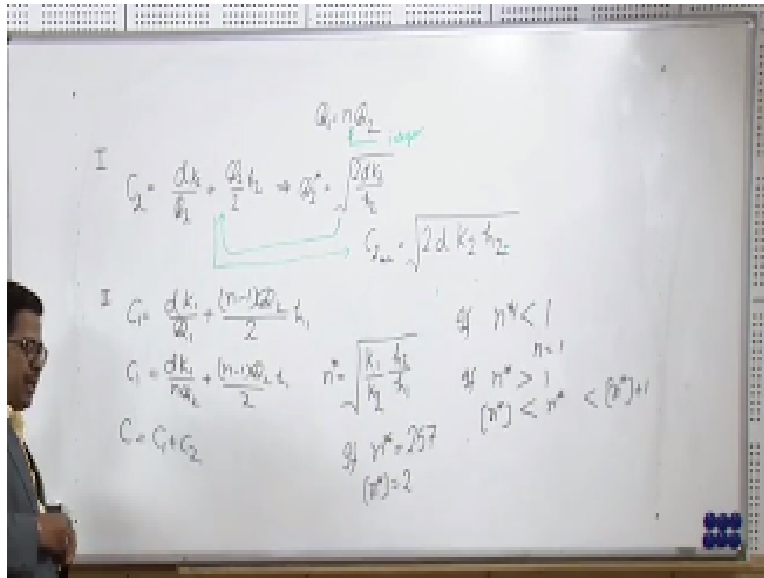 Q₁ = nQ₂
integer
I
C₂ = dK₂/Q₂ + Q₂/2 h₂ ⇒ Q₂* = √(2dK₂/h₂)
C₂ = √(2d K₂ h₂)
II C₁ = dK₁/Q₁ + (n-1)Q₂/2 h₁
If n* < 1
n=1
C₁ = dK₁/nQ₂ + (n-1)Q₂/2 h₁
n* = √(K₁/K₂ h₂/h₁)
If n* > 1
[n*] < n* < [n*]+1
C = C₁+C₂
If n* = 2.57
[n*] = 2